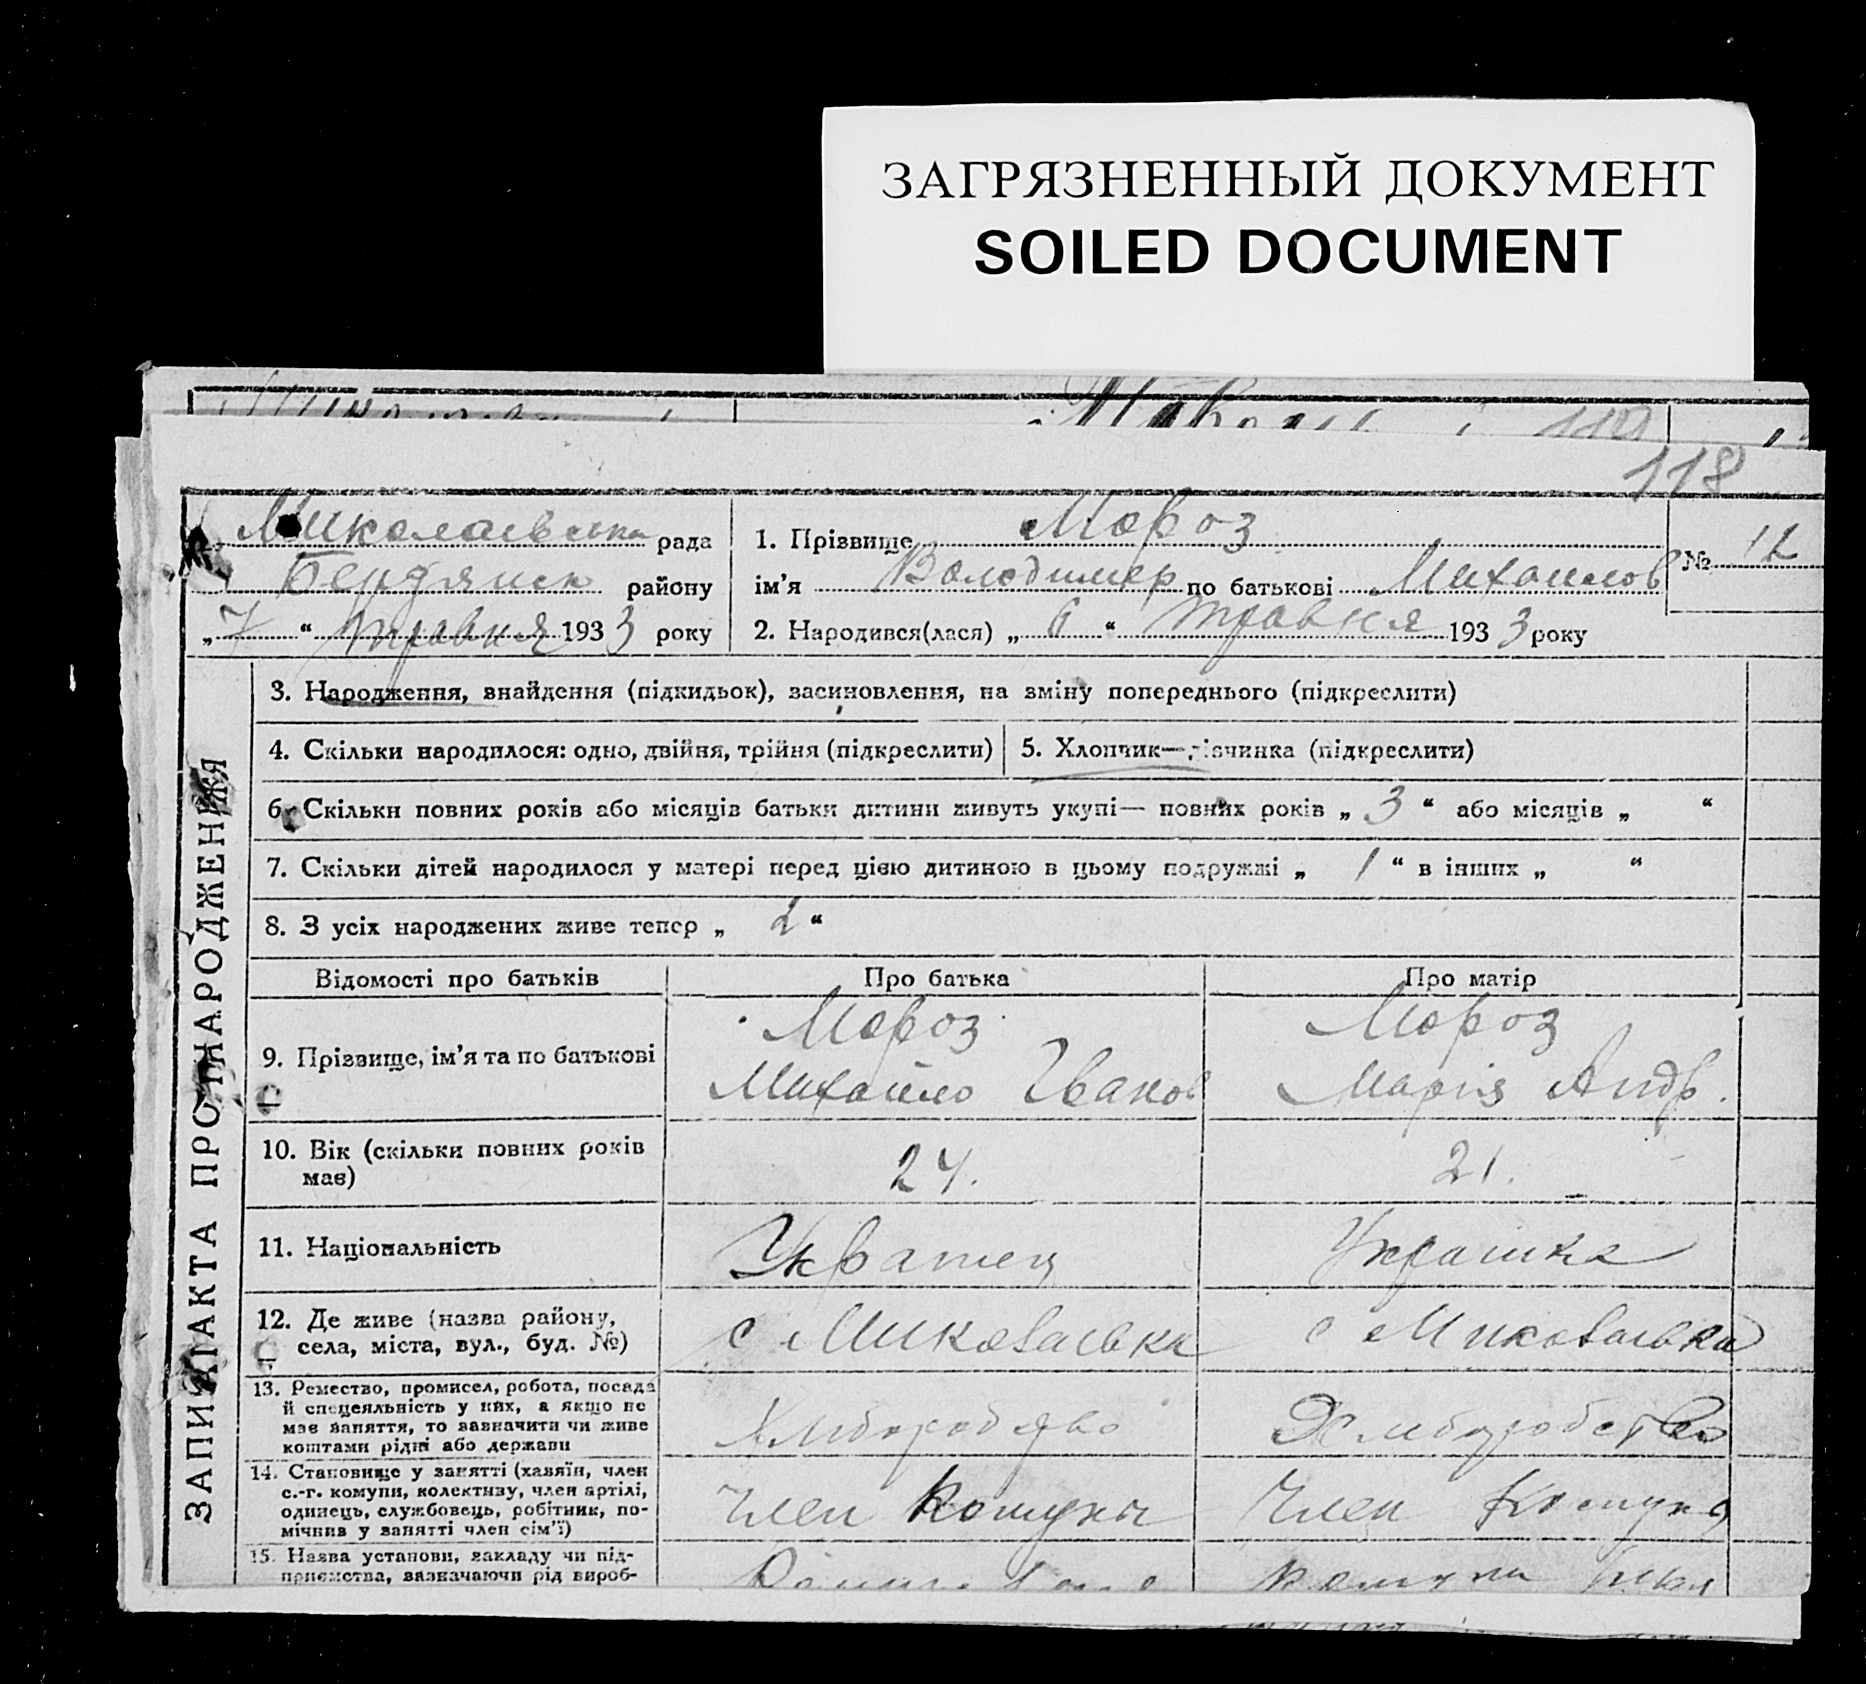 ЗАГРЯЗНЕННЫЙ ДОКУМЕНТ
SOILED DOCUMENT
119
118
Миколаївська рада
Бердянськ району
„7“ травня 1933 року
1. Прізвище Мороз
ім’я Володимер по батькові Михайлов
2. Народився(лася) „6“ травня 1933 року
№ 12
ЗАПИС АКТА ПРО НАРОДЖЕННЯ
3. Народження, знайдення (підкидьок), засиновлення, на зміну попереднього (підкреслити)
4. Скільки народилося: одно, двійня, трійня (підкреслити)
5. Хлопчик—дівчинка (підкреслити)
6. Скільки повних років або місяців батьки дитини живуть укупі— повних років „3“ або місяців „ “
7. Скільки дітей народилося у матері перед цією дитиною в цьому подружжі „1“ в інших „ “
8. З усіх народжених живе тепер „2“
Відомості про батьків
Про батька
Про матір
9. Прізвище, ім’я та по батькові
Мороз
Михайло Іванов
Мороз
Марія Андр.
10. Вік (скільки повних років
має)
24.
21.
11. Національність
Українец
Українка
12. Де живе (назва району,
села, міста, вул., буд. №)
с Миколаївка
с Миколаївка
13. Ремество, промисел, робота, посада
й спецеяльність у них, а якщо не
має заняття, то зазначити чи живе
коштами рідні або держави
Хліборобство
Хліборобство
14. Становище у занятті (хазяїн, член
с.-г. комуни, колективу, член артілі,
одинець, службовець, робітник, по-
мічник у занятті член сім’ї)
Член Комуни
Член Комуни
15. Назва установи, закладу чи під-
приємства, зазначаючи рід вироб-